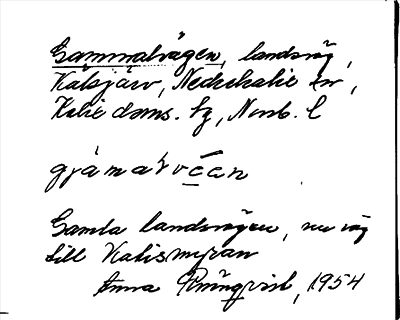 Gammalvägen, landsväg,
Kälsjärv, Nederkalix sn,
Kalix doms. tg, Norrb. l
gjämalvɛ̄an
Gamla landsvägen, nu väg
till Kalixmyran
Anna 1954